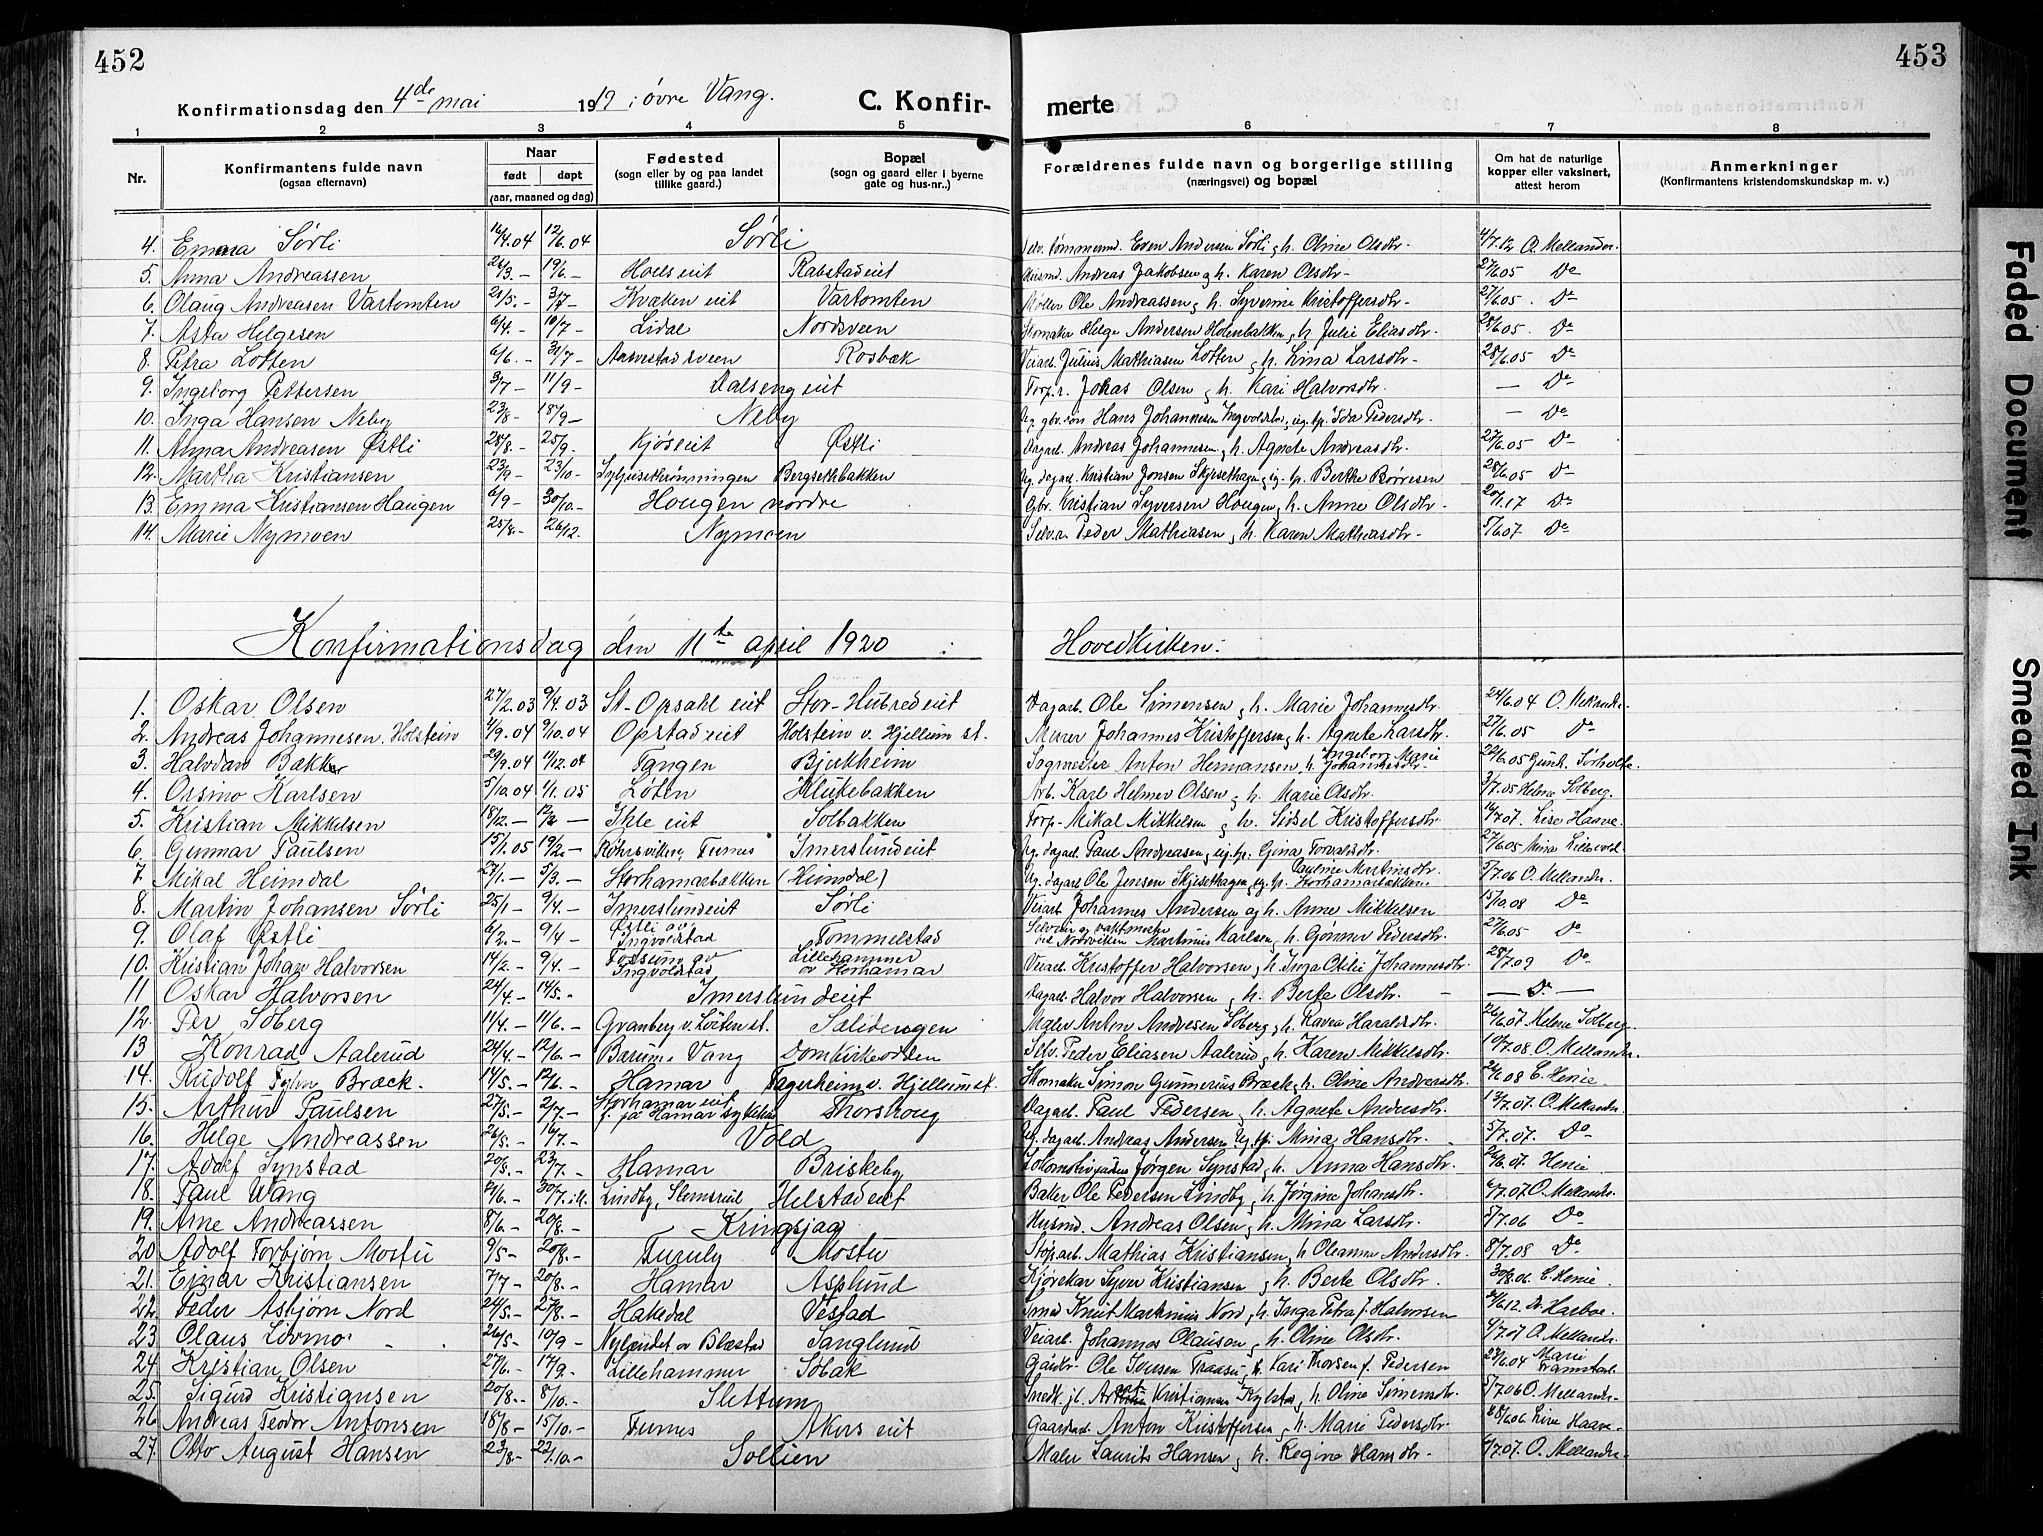 452
453
Konfirmationsdag den 4de mai 1919 i øvre Vang.
C. Konfir-
merte
1 2 3 4 5 6 7 8
Nr.
Konfirmantens fulde navn
(ogsaa efternavn)
Naar
født døpt
(aar, maaned og dag)
Fødested
(sogn eller by og paa landet
tillike gaard.)
Bopæl
(sogn og gaard eller i byerne
gate og hus-nr..)
Forældrenes fulde navn og borgerlige stilling
(næringsvei) og bopæl
Om hat de naturlige
kopper eller vaksinert,
attest herom
Anmerkninger
(Konfirmantens kristendomskundskap m. v.)
4. Emma Sørli 16/4.04 12/6.04 Sørli Even Andersen Sørli og h. Oline Olsdtr. 4/7.12 O. Mellander.
5. Anna Andreassen 26/3.– 19/6– Rabstadeiet Husmd. Andreas Jakobsen og h. Karen Olsdtr– 27/6.05 Do
6. Olaug Andreasen Vartomten 21/5.– 3/7– Kvæken eiet Vartomten Møller Ole Andreassen og h. Syverine Kristoffersdtr– 27/6.05. Do
7. Asta Helgesen 6/4.– 10/7– Lidal Nordsveen Skomaker Helge Andersen Holenbakken og h. Julie Eliasdtr. 28/6.05. Do
8. Petra Lotten 6/6.– 31/7– Rosbæk Veiarb. Julius Mathiasen Lotten og h. Lina Larsdtr– 28/6.05 Do
9. Ingeborg Pettersen 3/7– 11/9– Dalseng eiet Torp.r. Olsen og h. Kari Halvorsdtr. — Do
10. Inga Hansen Neby 23/8– 18/9– Neby Hans Johannesen Ida Pedersdtr. — Do
11. Anna Andreasen Østli 28/8.– 25/9. Kjøseiet Østli Dagarb. Andreas Johannesen og h. Agnete Andreasdtr. 27/6.05 Do
12. Martha Kristiansen 23/9– 23/10– Bergsethbakken Ug. dagarb. Kristian Jonsen Skjesethagen Berthe Børresen 28/6.05 Do
13. Emma Kristiansen Haugen 6/9– 30/10.– Hougen nordre Gbr. Kristian Syversen Hougen og h. Anne Olsdtr– 20/1.17 Do
14. Marie Nymoen 25/8.– 26/12. Nymoen Selv.r. Peder Mathiasen og h. Karen Mathiasdtr– 5/6.07 Do
Konfirmationsdag den 11te april 1920 i Hovedkirken.
1. Oskar Olsen 27/2.03 9/4.03 St-Opsahl eiet Stor-Hubred eiet Dagarb. Ole Simensen og h. Marie Johannesdtr. 24/6.04 O. Mellander.
2. Andreas Johannesen. Holstein 4/9.04 9/10.04 Opstad eiet Holstein v. Hjellum st. Murer Johannes Kristoffersen og h. Agnete Larsdtr. 27/6.05 Do
3. Halvdan Bækker 29/9.04 11/12.04 Tangen Bjerkheim Sagmester Anton Hermansen h. Ingeborg Marie Johannesdtr. 22/6.05 Gunh. Sørholte
4. Orsmo Karlsen 5/10.04 1/1.05 Løten Klukebakken Arb. Karl Helmer Olsen og h. Marie Olsdtr. 3/7.05 Helene Solberg.
5. Kristian Mikkelsen 18/12.– Ihle eiet Solbakken Torp– Mikal Mikkelsen og h. Sidsel Kristoffersdtr. 16/7.07. Lise Haave.
6. Gunnar Paulsen 15/1.05 19/2.– Furnes Imerslundeiet Ug. dagarb. Paul Andreasen Gina Torvaldsdtr. 27/6.05 Mina Lillevold.
7. Mikal Heimdal 27/1.– 5/3.– Storhamarbækken (Heimdal) Ug. dagarb. Ole Jensen Skjesethagen Pauline Martinsdtr. Storhamarbækken 5/7.06 O. Mellander.
8. Martin Johansen Sørli 25/1– 9/4.– Imerslundeiet Sørli Veiarb. Johannes Andersen og h. Anne Mikkelsen 15/10.08 Do
9. Olaf Østli 6/2.– 9/4– Østli av Ingvoldstad Tommelstad Selveier og vaktmester ved Nordviken Martinius Karlsen og h. Gønner Pedersdtr. 27/6.05 Do
10. Kristian Johan Halvorsen 14/2.– 9/4.– Fossum av Ingvoldstad Lillehammer av Storhamar Veiarb. Kristoffer Halvorsen og h. Inga Otilie Johannesdtr. 28/7.09 Do
11 Oskar Halvorsen 24/4.– 14/5.– Imerslundeiet Dagarb. Halvor Halvorsen og h. Berte Olsdtr. — Do —
12. Per Soberg 11/4.– 11/6.– Granberg v. Løiten st. Maler Anton Andresen Soberg og h. Haraldsdtr. 26/6.07 Helene Solberg.
13 Konrad Aalerud 24/4.– 12/6.– Vang Domkirkeodden Selv. Peder Eliasen Aalerud og h. Karen Mikkelsdtr. 10/7.08. O. Mellander.
14. Rudolf Fyhn Bræck. 14/5.– 12/6.– Hamar Fagerheim v. Hjellum st. Skomaker Simon Gunnerius Bræck og h. Oline Andersdtr. 24/6.08 C. Henie.
15. Arthur Paulsen 27/5.– 2/7.– Storhamar eiet f. på Hamar sykehus Thorshoug Dagarb. Paul Pedersen og h. Agnete Andersdtr. 13/7.07. O. Mellander.
16. Helge Andreassen 26/5.– 16/7.– Vold Ug. dagarb. Andreas Andersen Mina Hansdtr. 5/7.07. Do
17. Adolf Synstad 20/5.– 23/7.– Hamar Briskeby Jørgen Synstad og h. Anna Hansdtr. 26/6.07. Henie.
18. Paul Wang 21/6.– 30/7. Lindby, Slemsrud Helstad eiet Baker Ole Pedersen Lindby og h. Jørgine Johansdtr. 6/7.07 O. Mellander.
19. Arne Andreassen 8/6.– 20/8.– Kringsjaa Husmd. Andreas Olsen og h. Mina Larsdtr. 5/7.06 Do
20. Adolf Torbjørn Mostu 9/5– 20/8.– Furuly Mostu Støparb. Mathias Kristiansen og h. Oleanne Andersdtr. 8/7.08 Do
21. Einar Kristiansen 7/7– 20/8.– Hamar Asplund Kjørekar Syver Kristiansen og h. Berte Olsdtr. C. Henie.
22. Peder Asbjørn Nord 24/5.– 27/8.– Hakedal Vestad Smed Knut Markinius Nord og h. Inga Petra f. Halvorsen Dr. Harboe.
23. Olaus Livmo. 26/5– 10/9– Nylændet av Blæstad Sanglund Veiarb. Johannes Olausen og h. Oline Olsdtr. 4/7.07 O. Mellander.
24. Kristian Olsen 27/6.– 17/9.– Lillehammer Sobak Gårdbr. Ole Iversen og h. Kari Thorsen f. Pedersen 23/6.04 Marie Framstad.
25. Sigurd Kristiansen 20/8.– 8/10.– Slettum Kristiansen og h. Oline Simensdtr. 5/7.06 O. Mellander.
26. Andreas Teodor Antonsen 18/8– 15/10.– Furnes Akers eiet Anton Kristoffersen og h. Marie Pedersdtr. 28/6.06 Lise Haave.
27. Otto August Hansen 23/8.– 22/10.– Sollien Maler Laurits Hansen og h. Regine Hansdtr– 4/7.07. O. Mellander.
Faded Document
Smeared Ink